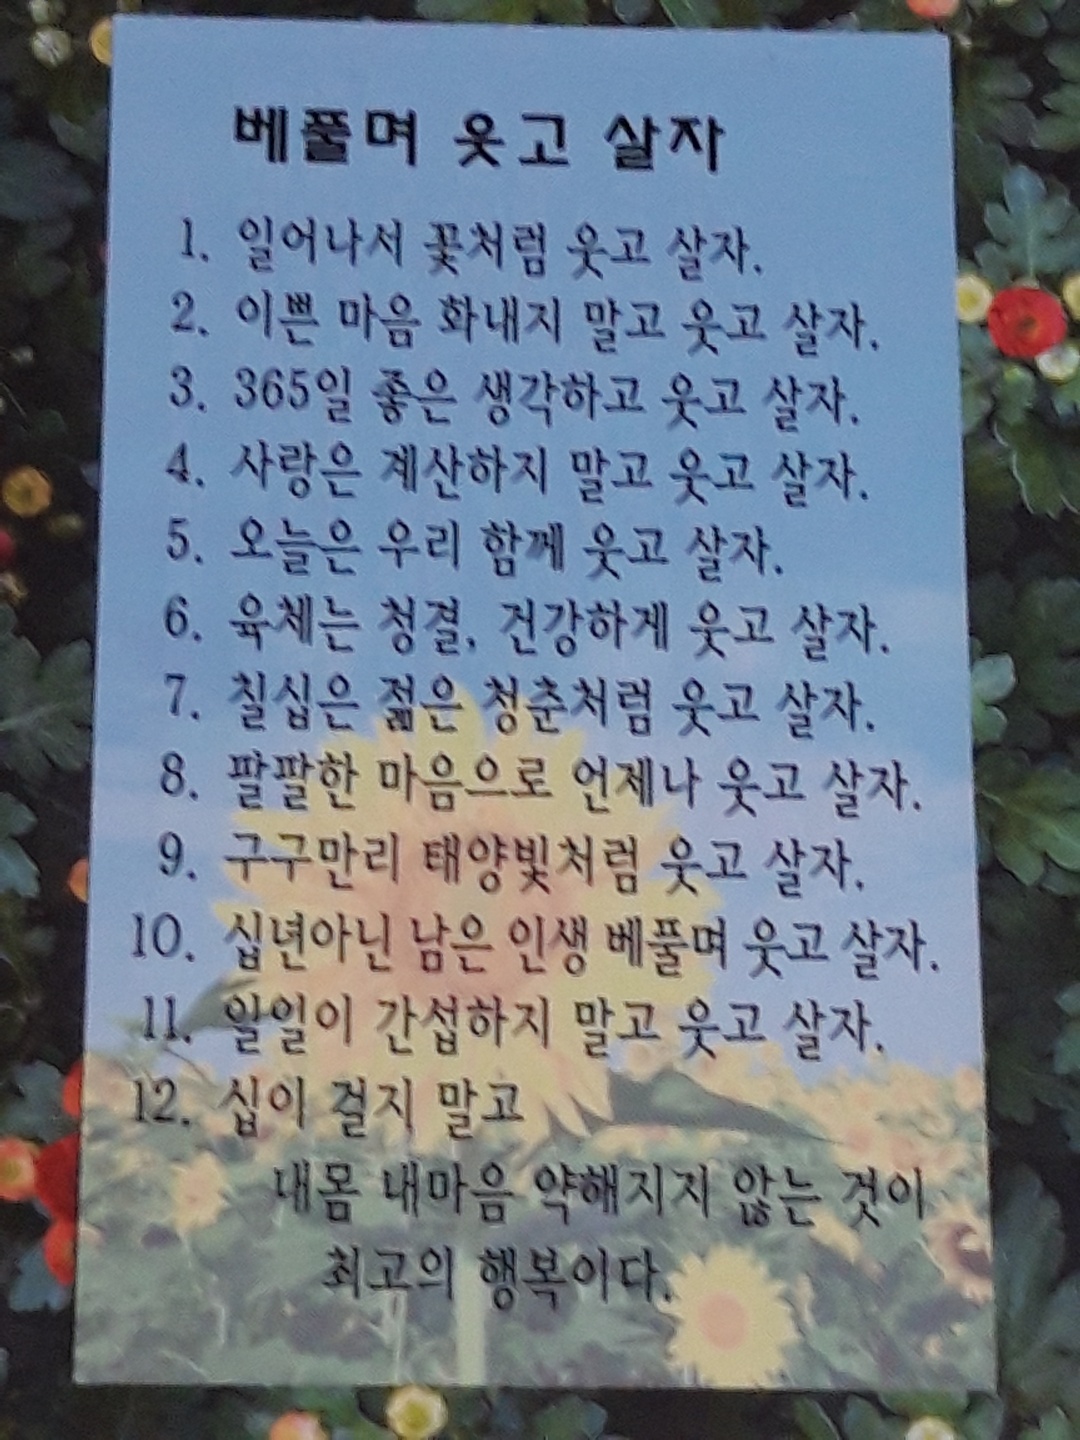 베풀며 웃고 살자
1. 일어나서 꽃처럼 웃고 살자.
2. 이쁜 마음 화내지 말고 웃고 살자.
3. 365일 좋은 생각하고 웃고 살자.
4. 사랑은 계산하지 말고 웃고 살자.
5. 오늘은 우리 함께 웃고 살자.
6. 육체는 청결, 건강하게 웃고 살자.
7. 칠십은 젊은 청춘처럼 웃고 살자.
8. 팔팔한 마음으로 언제나 웃고 살자.
9. 구구만리 태양빛처럼 웃고 살자.
10. 십년아닌 남은 인생 베풀며 웃고 살자.
11. 일일이 간섭하지 말고 웃고 살자.
12. 십이 걸지 말고
내몸 내마음 약해지지 않는 것이
최고의 행복이다.